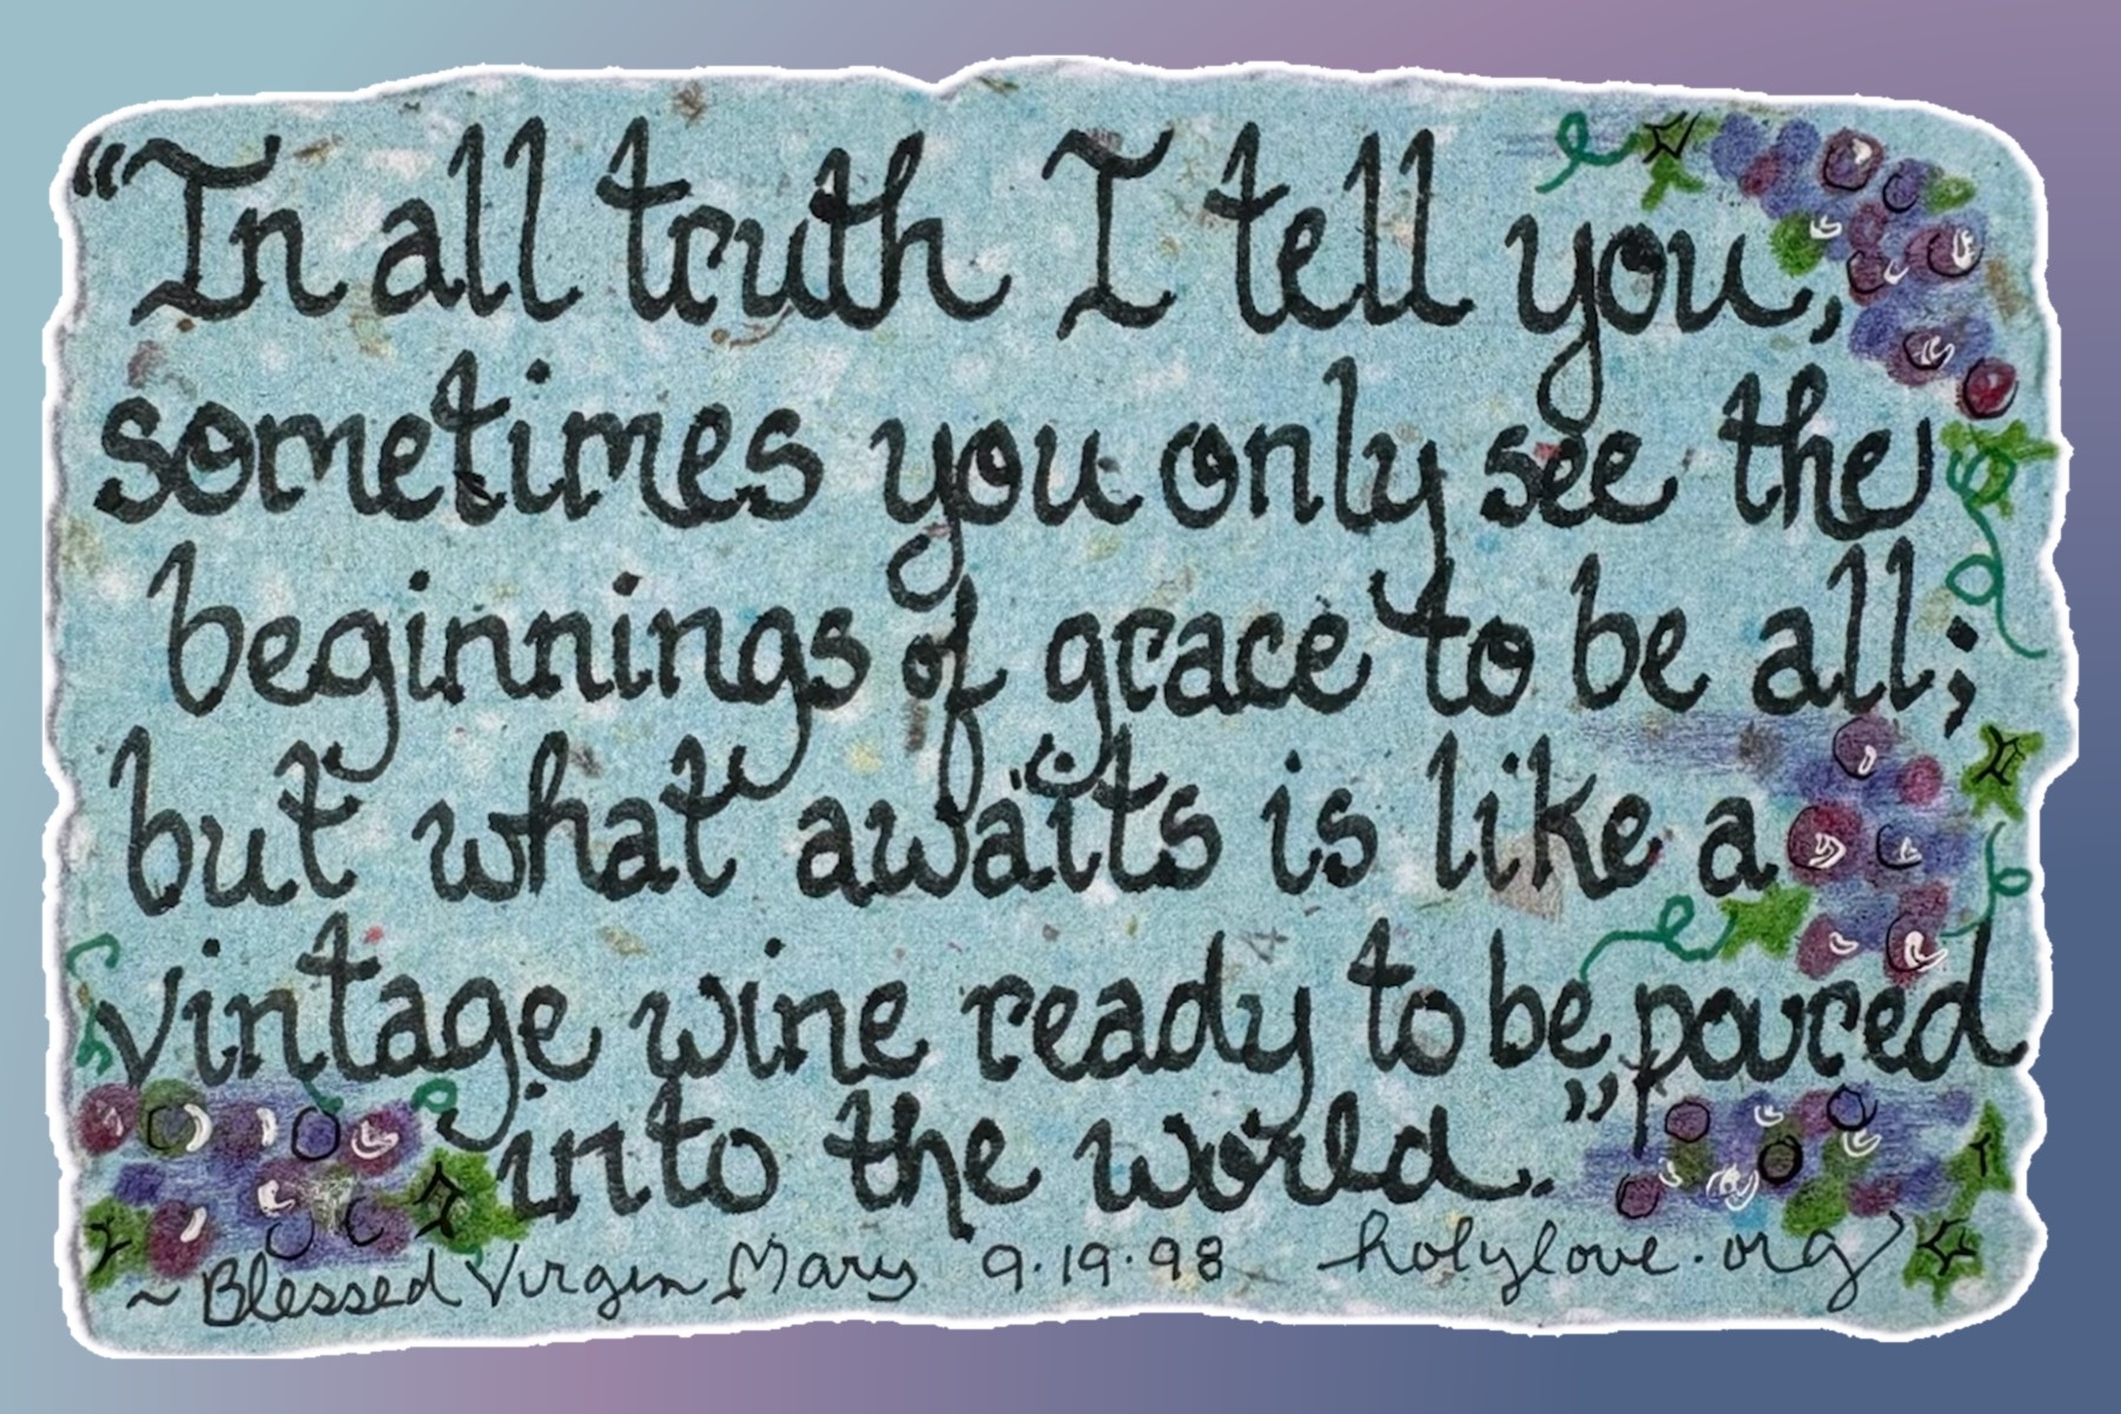 “In all truth I tell you,
sometimes you only see the
beginnings of grace to be all;
but what awaits is like a
vintage wine ready to be poured
into the world.”
~Blessed Virgin Mary 9.19.98 holylove.org